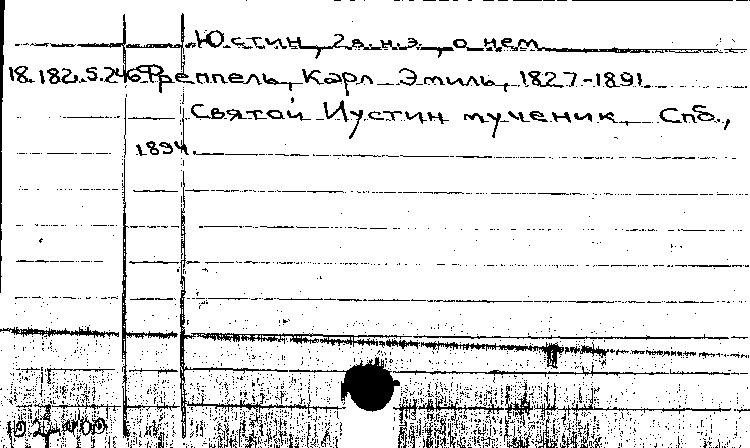 Юстин, 2 в. н.э., о нем
18.182.5.246 Фреппель, Карл Эмиль, 1827-1891.
Святой Иустин мученик. Спб.,
1894.